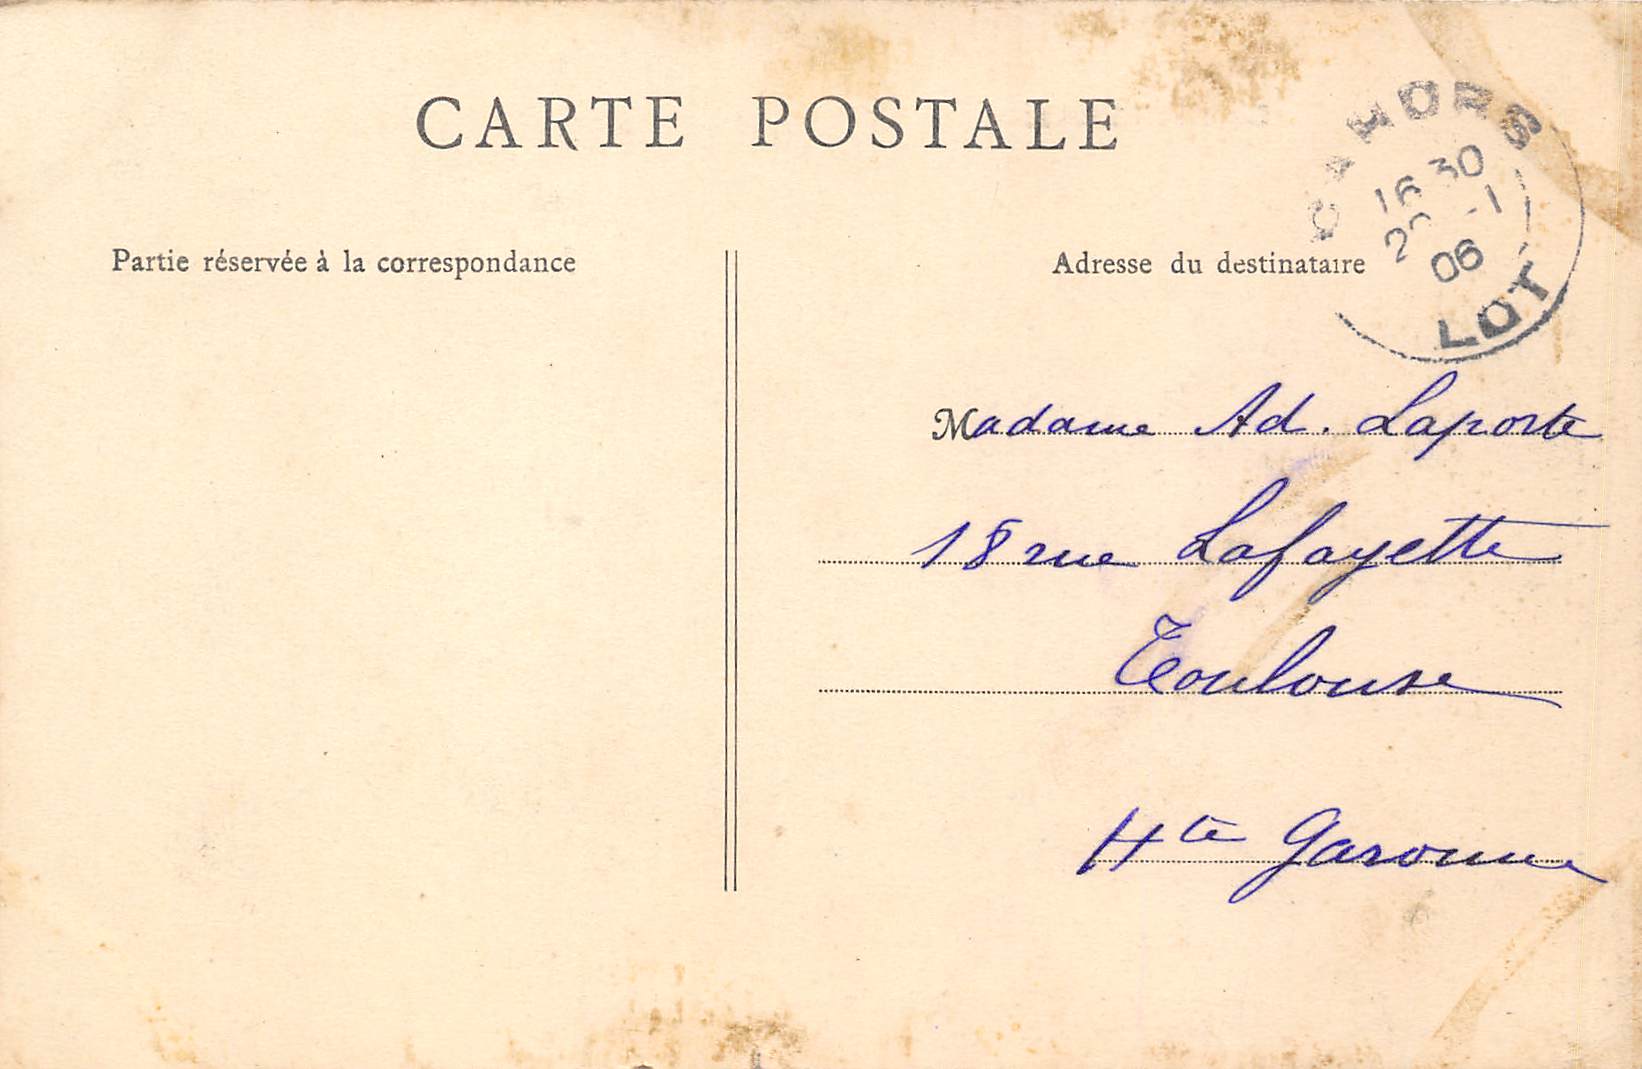 CARTE POSTALE
CAHORS
16 30
-1
06
LOT
Partie réservée à la correspondance
Adresse du destinataire
Madame Ad. Laporte
18 rue Lafayette
Toulouse
Hte Garonne